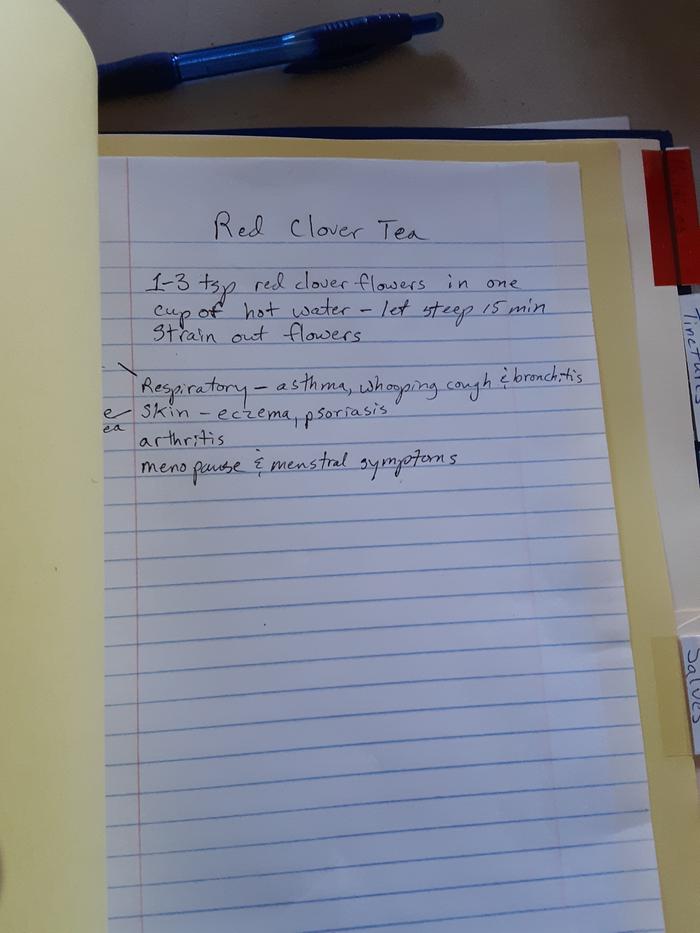 Red Clover Tea
1-3 tsp red clover flowers in one
cup of hot water - let steep 15 min
Strain out flowers
Respiratory - asthma, whooping cough & bronchitis
Skin - eczema, psoriasis
arthritis
menopause & menstral symptoms
e
ea
Tinctures
Salves